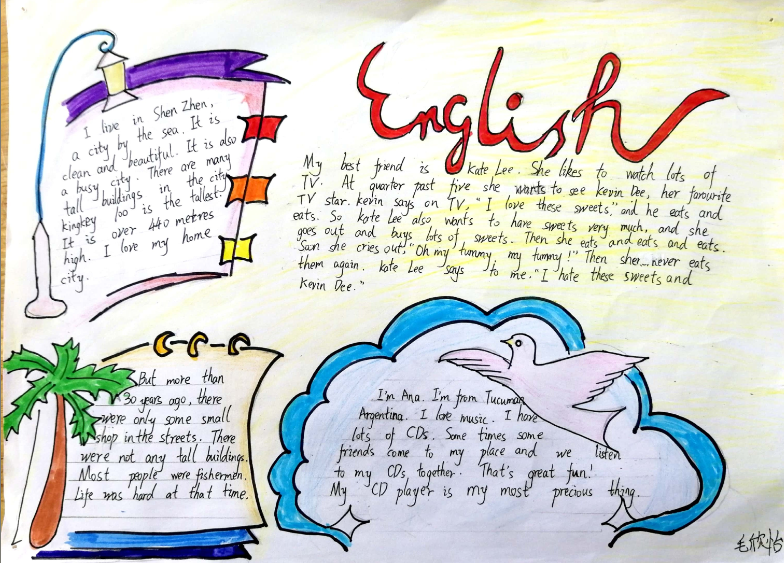 English
I live in Shen Zhen,
a city by the sea. It is
clean and beautiful. It is also
a busy city. There are many
tall buildings in the city
kingkey 100 is the tallest.
It is over 440 metres
high. I love my home
city.
My best friend is kate Lee. She likes to watch lots of
TV. At quarter past five she wants to see kevin Dee, her favourite
TV star. kevin says on TV, "I love these sweets," and he eats and
eats. So kate Lee also wants to have sweets very much, and she
goes out and buys lots of sweets. Then she eats and eats and eats.
Soon she cries out, "Oh my tummy my tummy!" Then she... never eats
them again. kate Lee says to me. "I hate these sweets and
Kevin Dee."
But more than
30 years ago, there
were only some small
shop in the streets. There
were not any tall buildings.
Most people were fishermen.
Life was hard at that time.
I'm Ana. I'm from Tucuman
Argentina. I love music. I have
lots of CDs. Some times some
friends come to my place and we listen
to my CDs together. That's great fun!
My CD player is my most precious thing.
毛欣怡